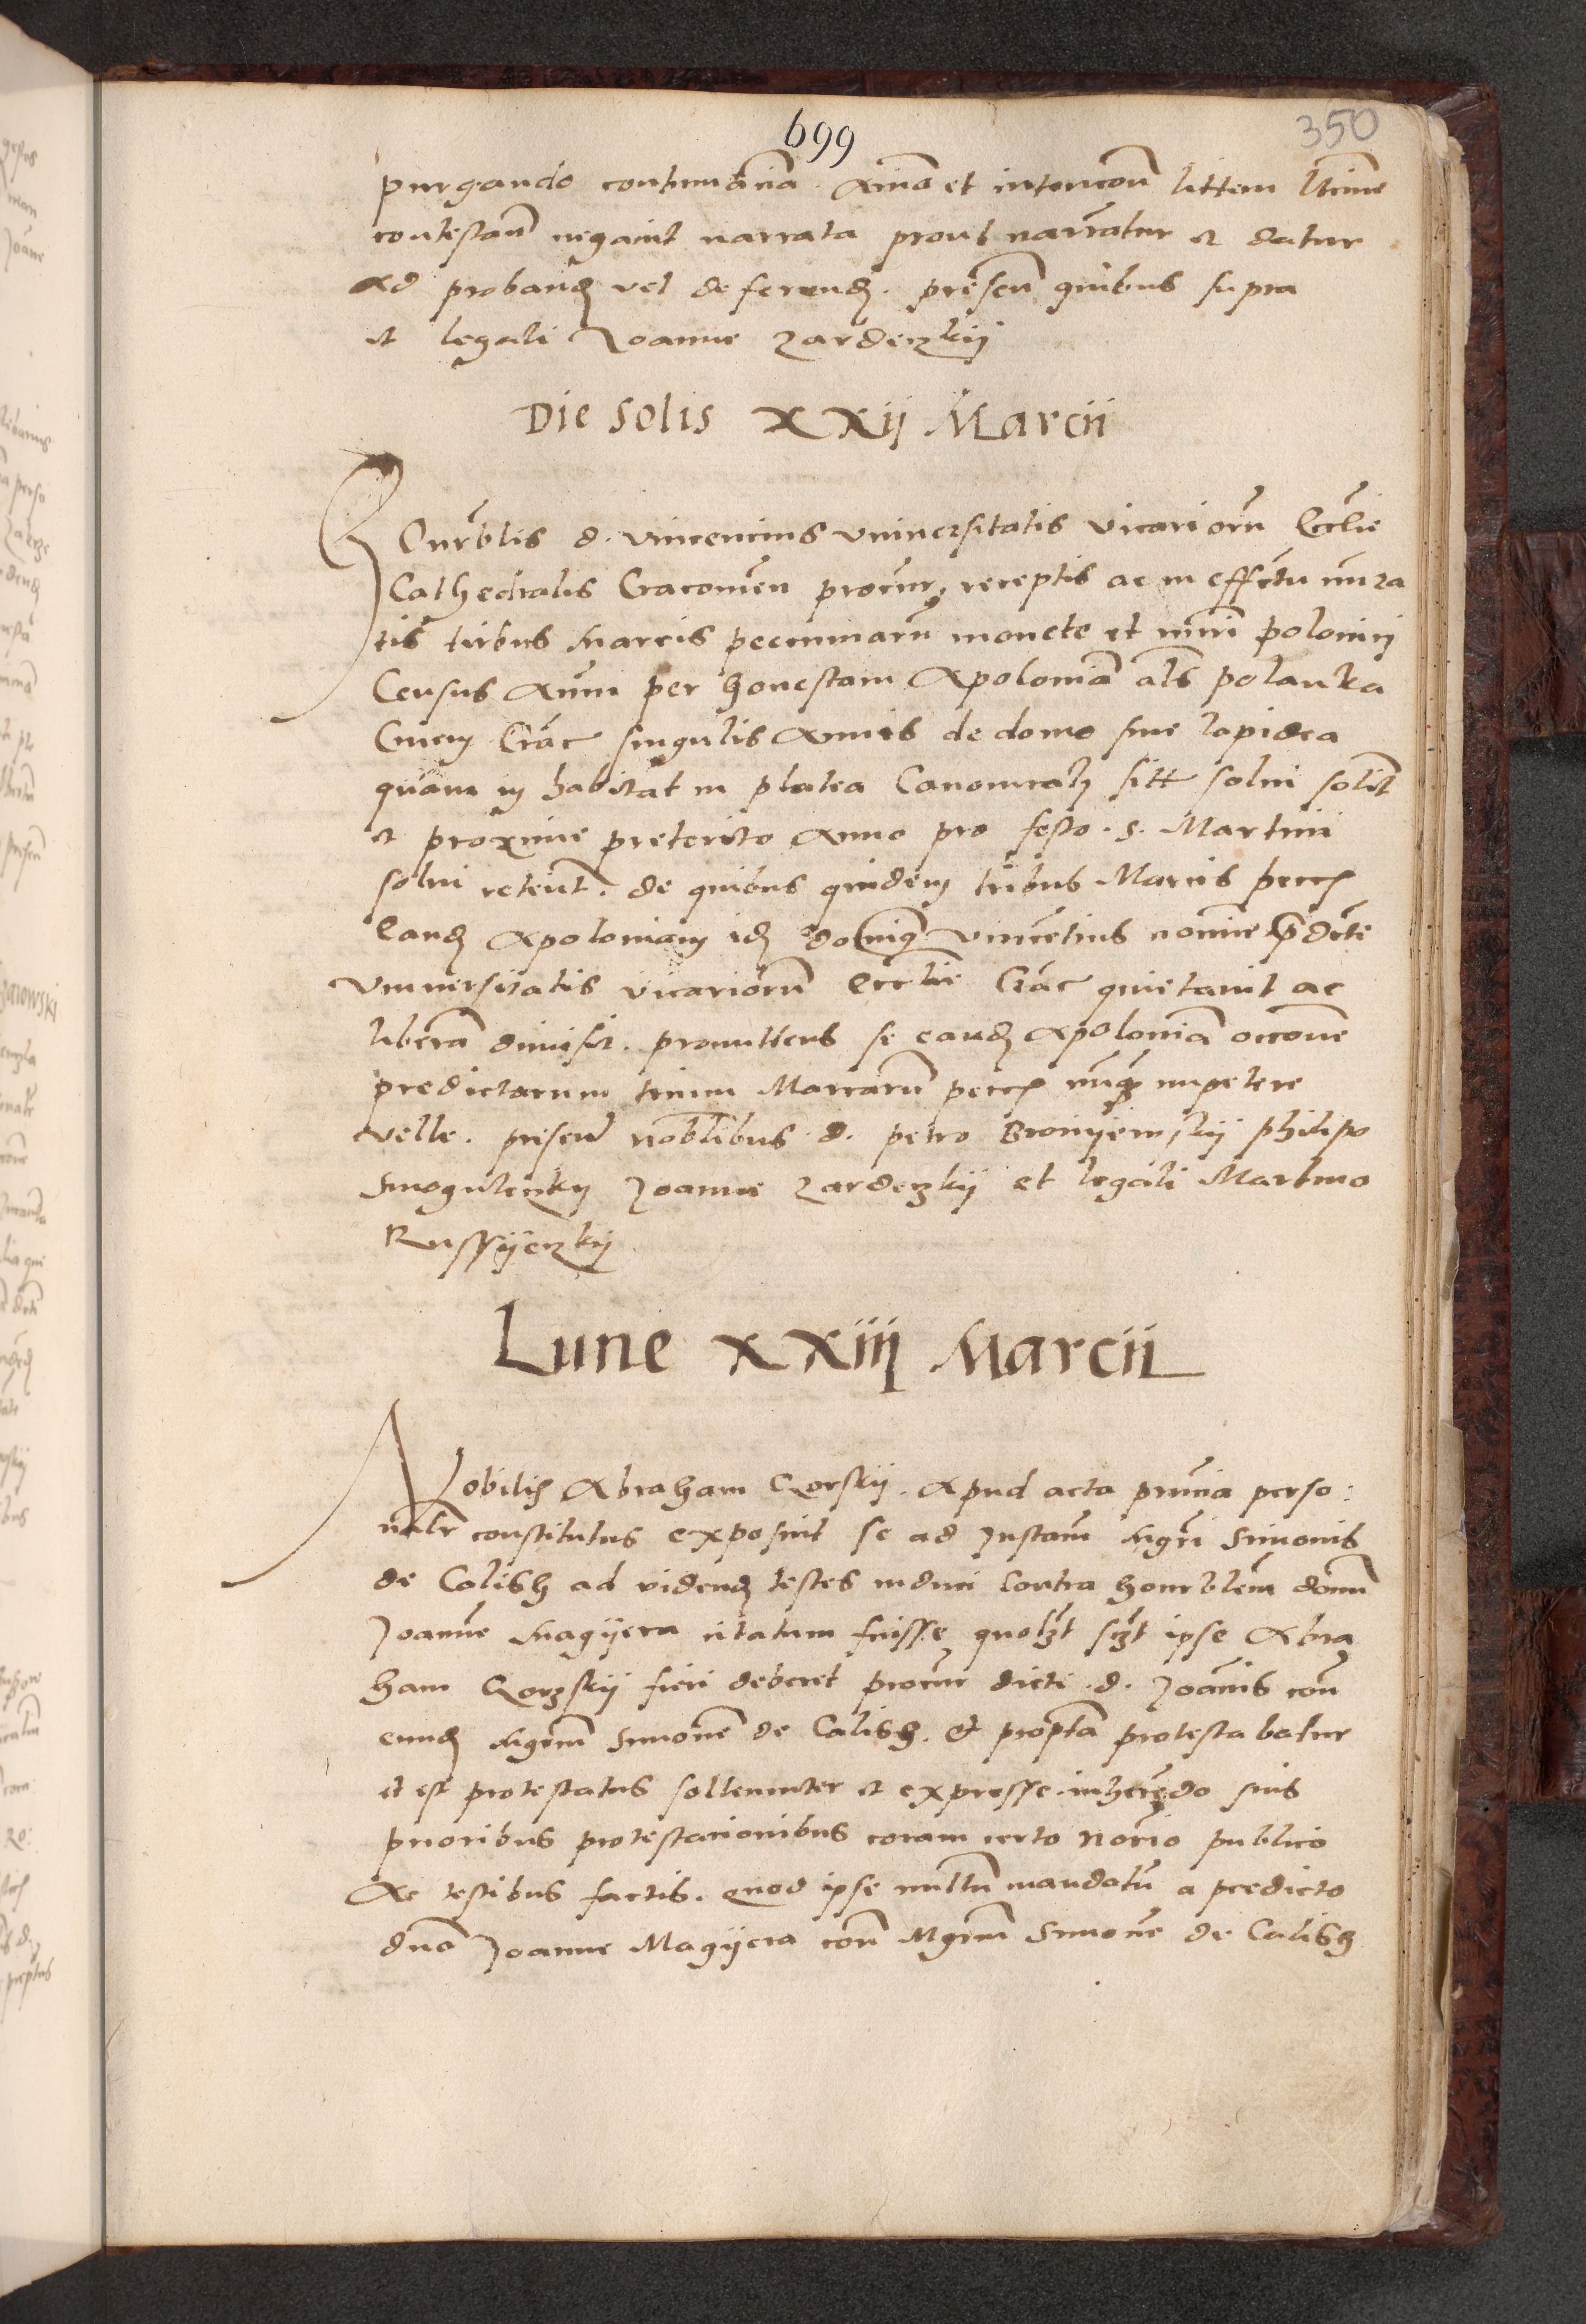 699
350
purgando contumaciā. Animo et intencōn littem ltīme
contestan̄ negavit narrata prout narrātur et datur
ad proband vel deferend. presen̄ quibus supra
et legali Joanne Zardeczkij
Die Solis XXII Marcii
Honrblis d. Vincencius Universitatis vicariorū Ecclīe
Cathedralis Cracovien procur, receptis ac in effectu nūra
tis tribus Marcis pecuniarū monete et nūri polonici
Census Annui per honestam Apoloniā als polanka
Civem Crac singulis Annis de domo sive lapidea
quam inhabitat in platea Canonicalj sitt solvi solit
et proxime preterito Anno pro festo. S. Martini
solvi retent. de quibus quidem tribus Marcis pecc
Eand Apoloniam id dominus Vincētius nomine prēdcte
Universitatis vicariorū Ecclīe Crac quietavit ac
liberā dimisit. promittens se eand Apoloniā occōne
predictarum trium Marcarū pecc nunq impetere
velle. presen̄ noblibus d. petro Bronyewskij philipo
Smogulenkij Joanne Zardeczkij et legali Martino
Russyenzkij
Lune XXIII Marcii
Nobilis Abraham Gorskij. Apud acta prūcia perso:
naltr constitutus exposuit se ad Instam̄ Mgri Simonis
de Calish ad vidend testes induci Contra honrblēm domū
Joannē Magijera citatum fuisse quolzt sczt ipse Abra
ham Gorzskij fieri deberet procur dicti d. Joānis con̄
eund Mgrm̄ Simonē de Calish. et proptā protestabatur
et est protestatus sollenniter et expresse inherēdo suis
prioribus protestacionibus coram certo Notrio publico
Ac testibus factis. quod ipse nullū mandatū a predicto
dno Joanne Magijera con̄ Mgrm̄ Simonē de Calish